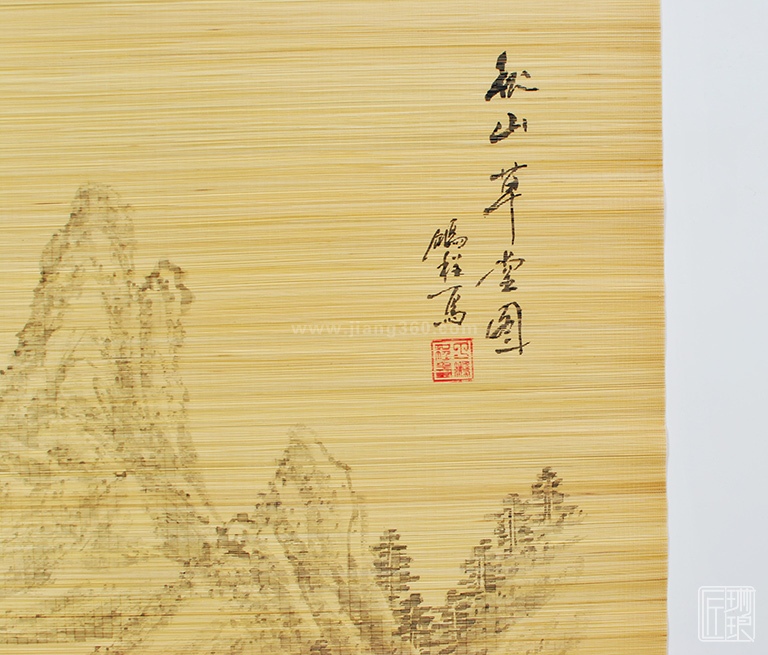 秋山草堂图
鹏程写
www.jiang360.com